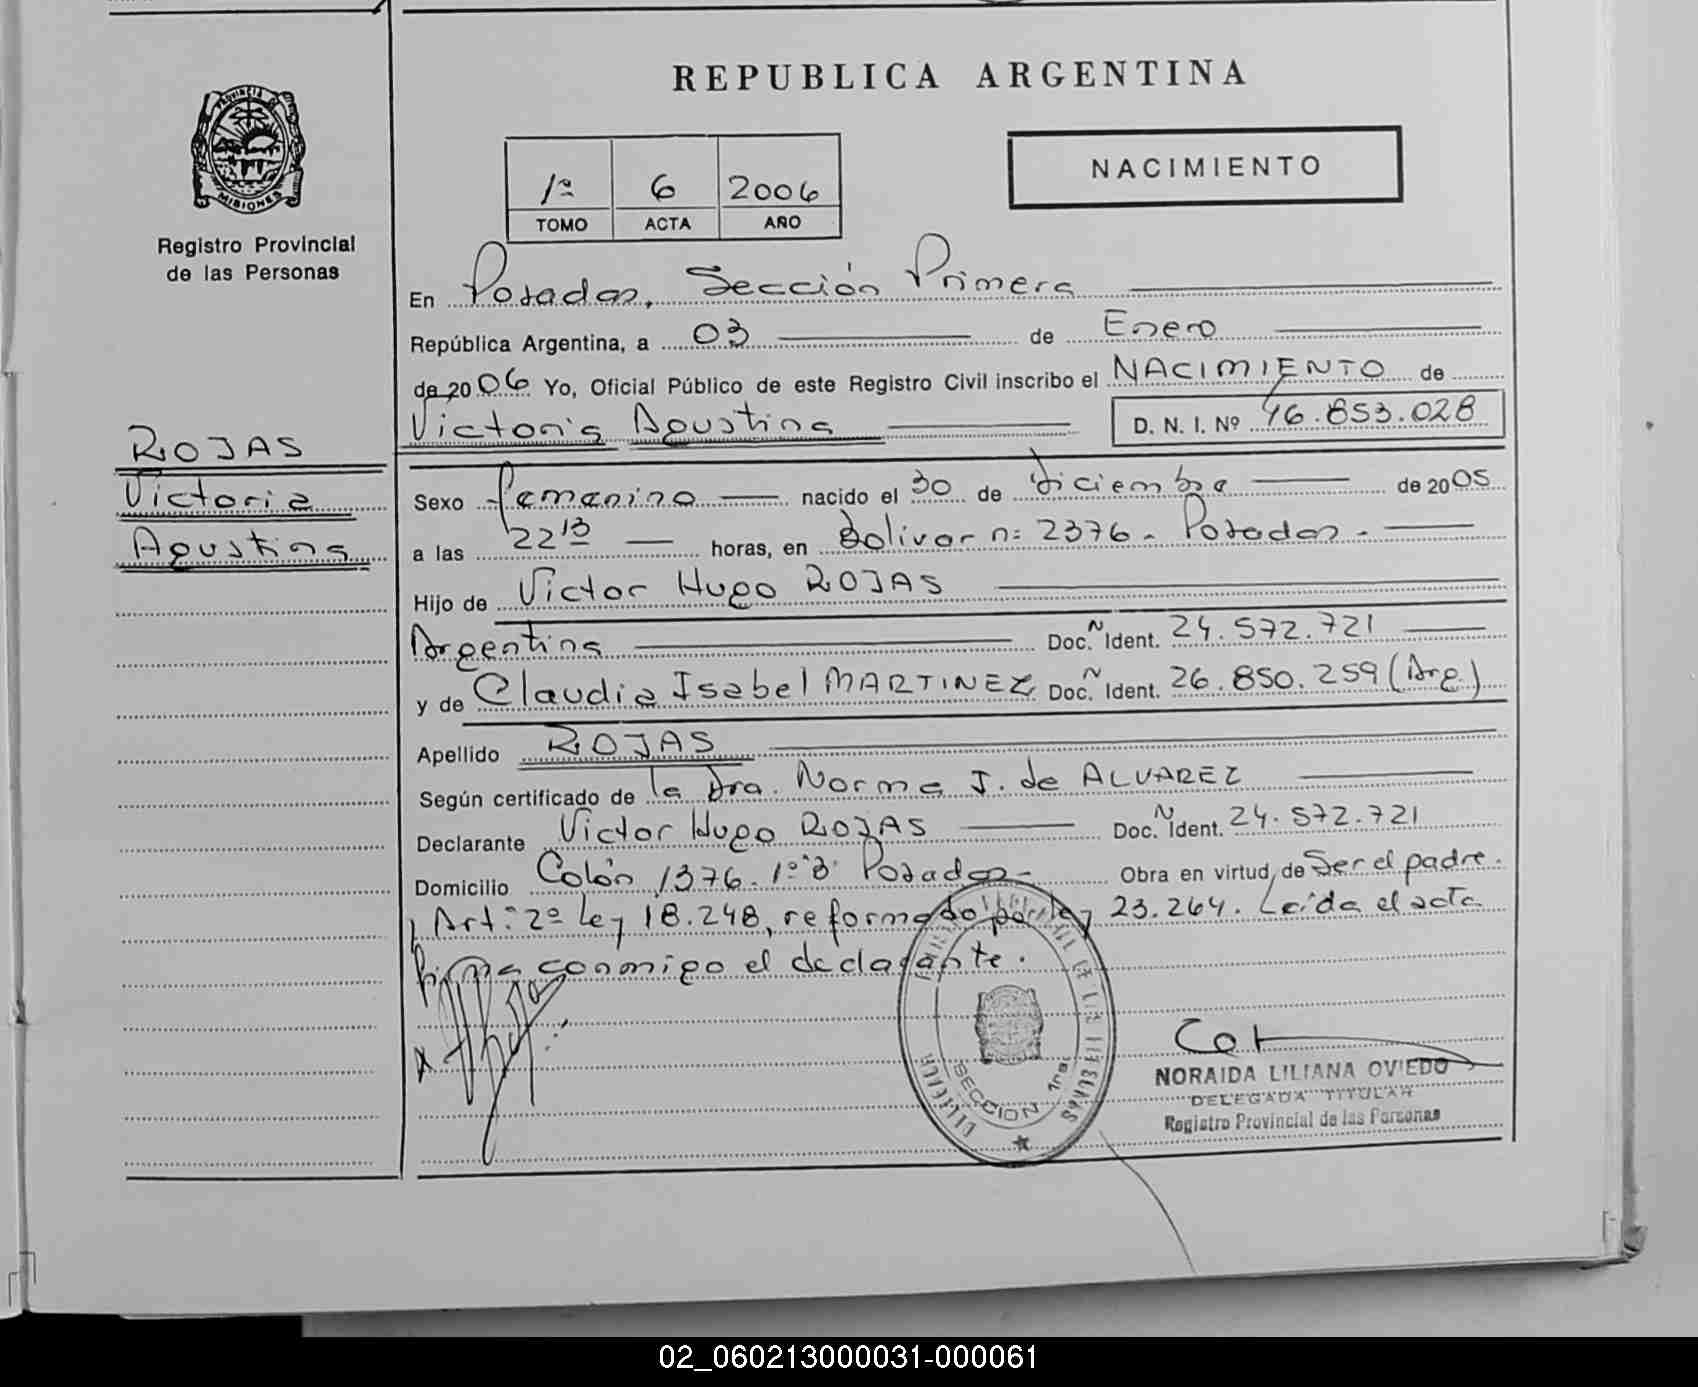 REPUBLICA ARGENTINA
PROVINCIA DE
MISIONES
Registro Provincial
de las Personas
1º 6 2006
TOMO ACTA AÑO
NACIMIENTO
En Posadas, Sección Primera
República Argentina, a 03 de Enero
de 2006 Yo, Oficial Público de este Registro Civil inscribo el NACIMIENTO de
Victoria Agustina D. N. I. Nº 46.853.028
ROJAS
Victoria
Agustina
Sexo Femenino nacido el 30 de diciembre de 2005
a las 22 13 horas, en Bolivar n: 2376 - Posadas -
Hijo de Victor Hugo ROJAS
Argentina Doc. N Ident. 24.572.721
y de Claudia Isabel MARTINEZ Doc. N Ident. 26.850.259 (Arg.)
Apellido ROJAS
Según certificado de la Dra. Norma J. de ALVAREZ
Declarante Victor Hugo ROJAS Doc. N Ident. 24.572.721
Domicilio Colón 1376. 1º B Posadas - Obra en virtud de Ser el padre.
Art: 2º Ley 18.248, reformado por ley 23.264. Leída el acta
firma conmigo el declarante.
SECCION 1ra
NORAIDA LILIANA OVIEDO
DELEGADA TITULAR
Registro Provincial de las Personas
02_060213000031-000061